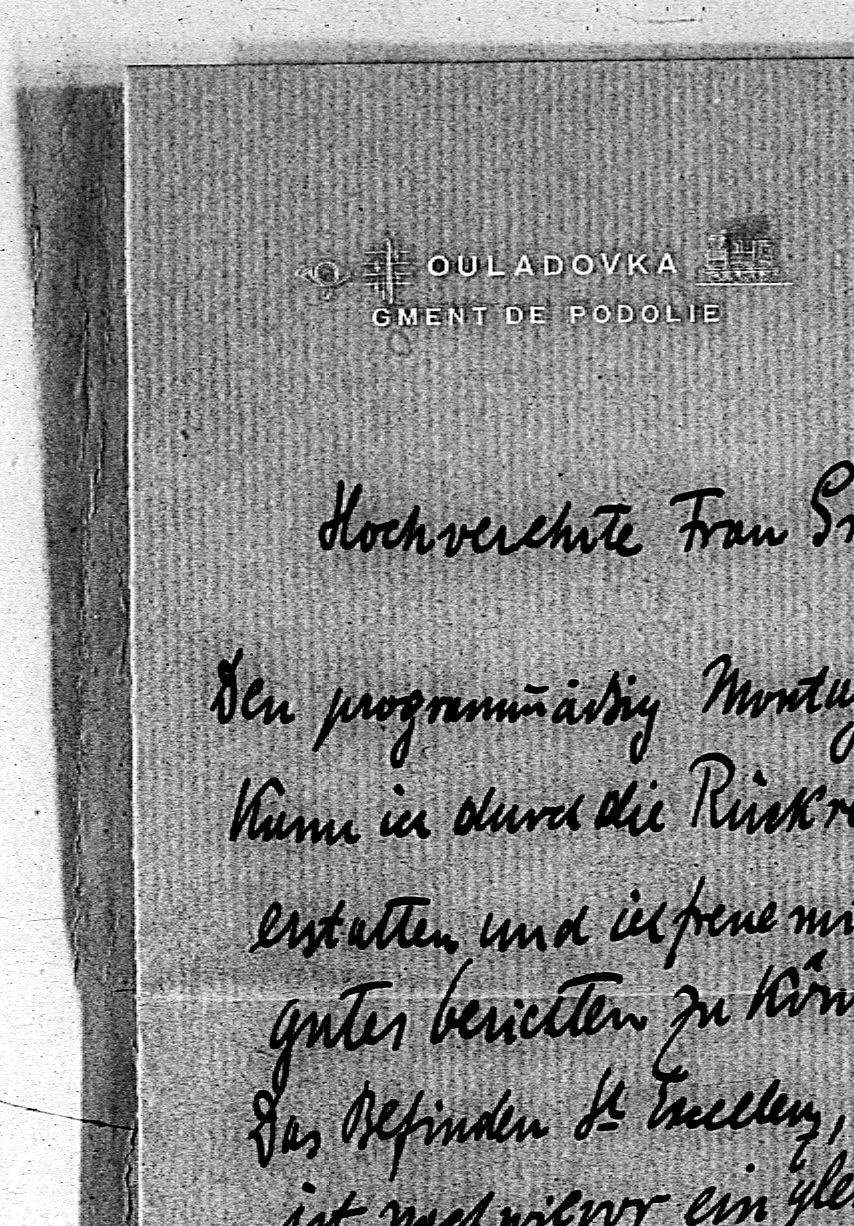 OULADOVKA
GMENT DE PODOLIE
Hochverehrte Frau
Den programmäßig
Kann ich durch die
erstatten und ich freue
gutes berichten zu
Das Befinden Sr Excellenz,
ist nach wie vor ein